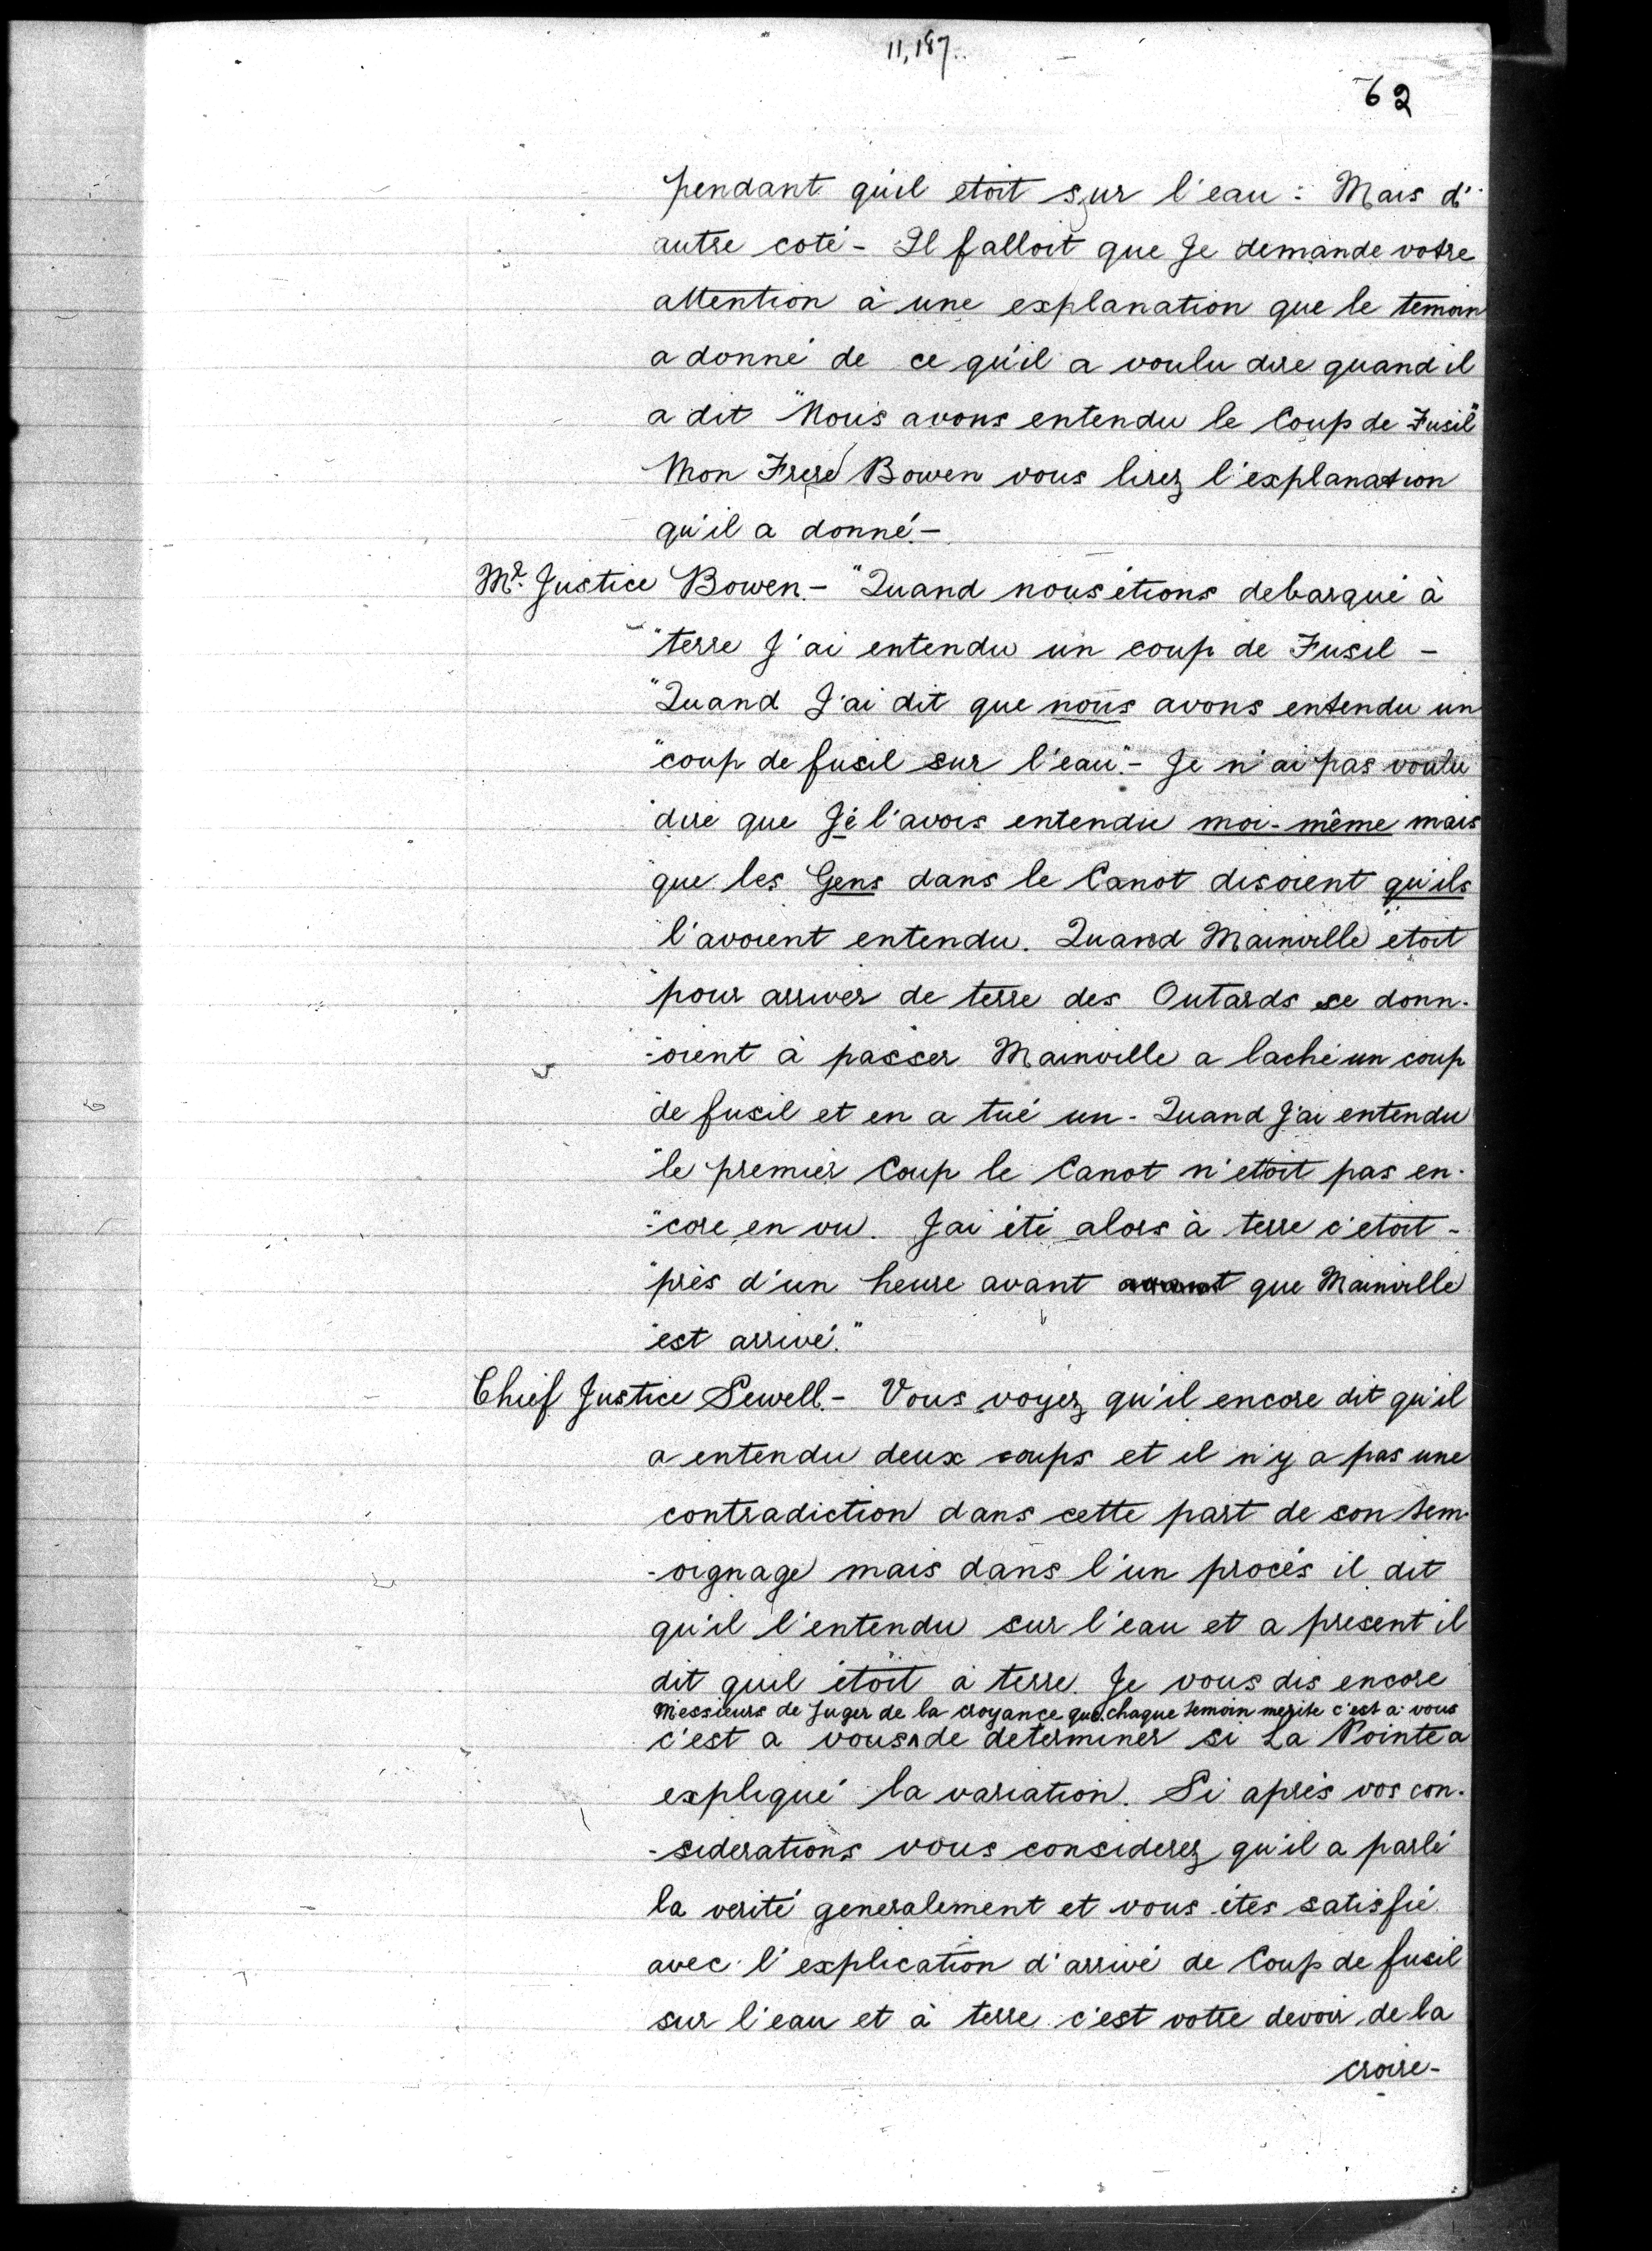 11,187..
62
pendant qu'il etoit sur l'eau : Mais d'
autre coté - Il falloit que Je demande votre
attention à une explanation que le temoin
a donné de ce qu'il a voulu dire quand il
a dit "Nous avons entendu le Coup de Fusil"
Mon Frere Bowen vous lirez l'explanation
qu'il a donné.-
Mr. Justice Bowen.- "Quand nous étions debarqué à
"terre J'ai entendu un coup de Fusil -
"Quand J'ai dit que nous avons entendu un
"coup de fusil sur l'eau".- Je n'ai pas voulu
"dire que Je l'avois entendu moi-même mais
"que les Gens dans le Canot disoient qu'ils
"l'avoient entendu. Quand Mainville etoit
"pour arriver de terre des Outards se donn-
"-oient à passer Mainville a laché un coup
"de fusil et en a tué un - Quand J'ai entendu
"le premier Coup le Canot n'etoit pas en-
"-core en vu. J'ai été alors à terre c'etoit -
"près d'un heure avant avant que Mainville
"est arrivé."
Chief Justice Sewell.- Vous voyez qu'il encore dit qu'il
a entendu deux coups et il n'y a pas une
contradiction dans cette part de son tem-
-oignage mais dans l'un procés il dit
qu'il l'entendu sur l'eau et a present il
dit quil étoit à terre. Je vous dis encore
Messieurs de Juger de la croyance que chaque temoin merite c'est a vous
c'est a vous^de determiner si La Pointe a
expliqué la variation. Si aprés vos con-
-siderations vous considerez qu'il a parlé
la verité generalement et vous étes satisfié
avec l'explication d'arrivé de Coup de fusil
sur l'eau et à terre c'est votre devoir de la
croire-